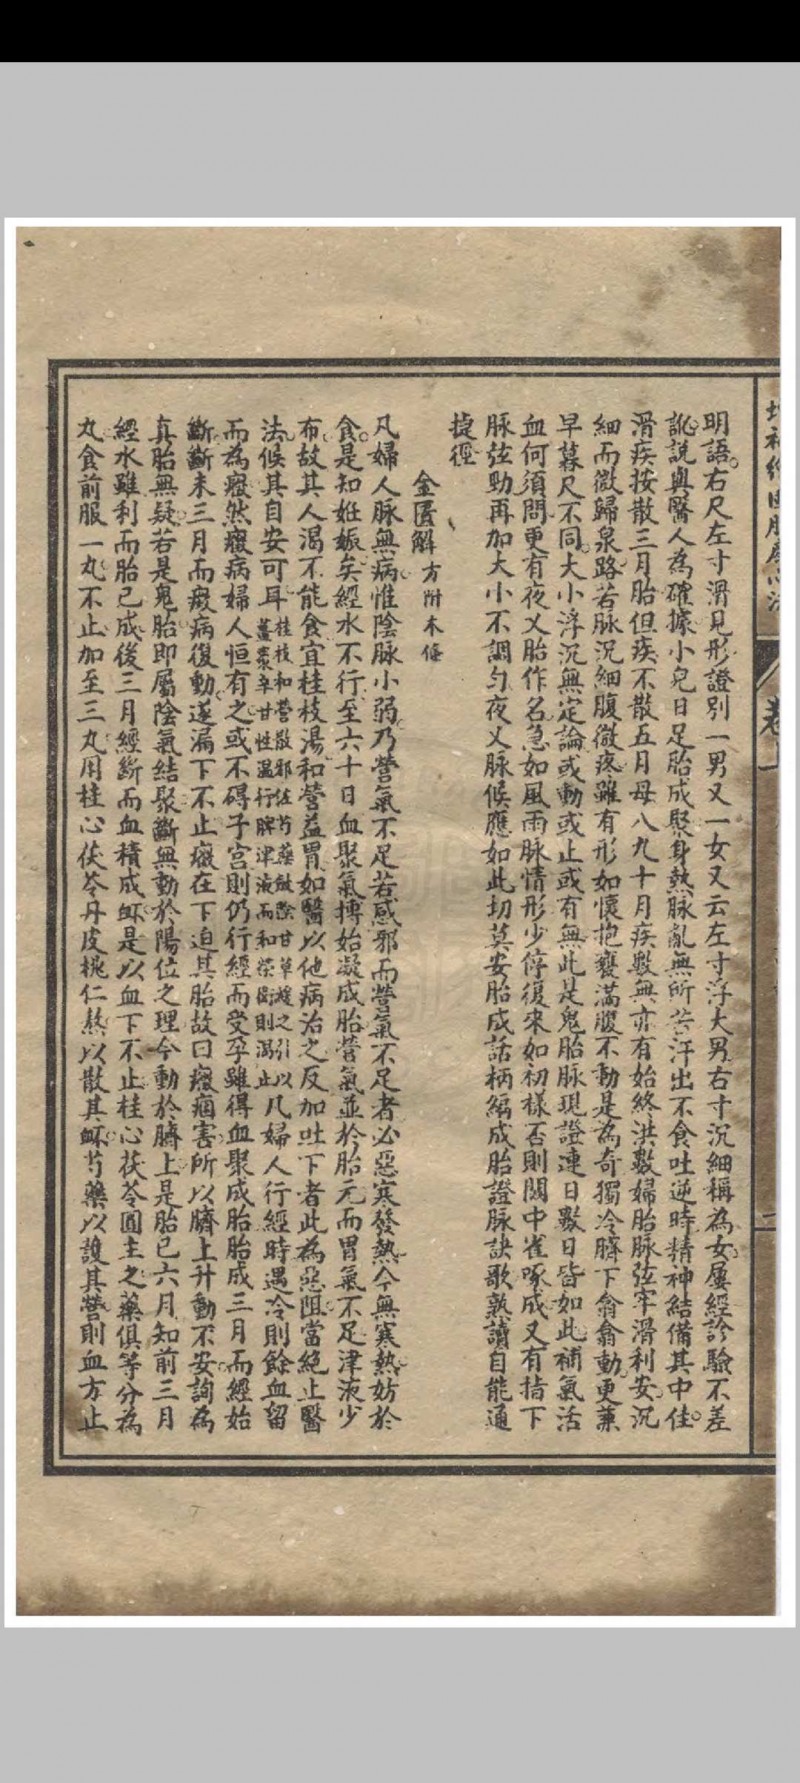 明語右尺左寸滑見形證別一男又一女又云左寸浮大男右寸沉細稱為女屢經診驗不差
訛說與醫人為確據小兒日足胎成聚身熱脉亂無所苦汗出不食吐逆時精神結備其中佳
滑疾按散三月胎但疾不散五月母八九十月疾數無亦有始終洪數婦胎脉弦牢滑利安沉
細而微歸泉路若脉沉細腹微疼雖有形如懷抱甕滿腹不動是為奇獨冷臍下翕翕動更兼
早暮尺不同大小浮沉無定論或動或止或有無此是鬼胎脉現證連日數日皆如此補氣活
血何須問更有夜乂胎作名急如風雨脉情形少停復來如初樣否則閣中雀啄成又有指下
脉弦勁再加大小不調勻夜乂脉候應如此切莫安胎成話柄編成胎證脉訣歌熟讀自能通
捷徑
金匱解方附本條
凡婦人脉無病惟陰脉小弱乃營氣不足若感邪而營氣不足者必惡寒發熱今無寒熱妨於
食是知妊娠矣經水不行至六十日血聚氣摶始凝成胎營氣並於胎元而胃氣不足津液少
布故其人渴不能食宜桂枝湯和營益胃如醫以他病治之反加吐下者此為惡阻當絕止醫
法候其自安可耳桂枝和營散邪佐芍藥斂陰甘草緩之引以薑棗辛甘性溫行脾津液而和榮衛則渴止凡婦人行經時遇冷則餘血留
而為癥然癥病婦人恒有之或不碍子宮則仍行經而受孕雖得血聚成胎胎成三月而經始
斷斷未三月而癥病復動遂漏下不止癥在下迫其胎故曰癥痼害所以臍上升動不安詢為
真胎無疑若是鬼胎即屬陰氣結聚斷無動於陽位之理今動於臍上是胎已六月知前三月
經水雖利而胎已成後三月經斷而血積成衃是以血下不止桂心茯苓圓主之藥俱等分為
丸食前服一丸不止加至三丸用桂心茯苓丹皮桃仁熬以散其衃芍藥以護其營則血方止
卷一